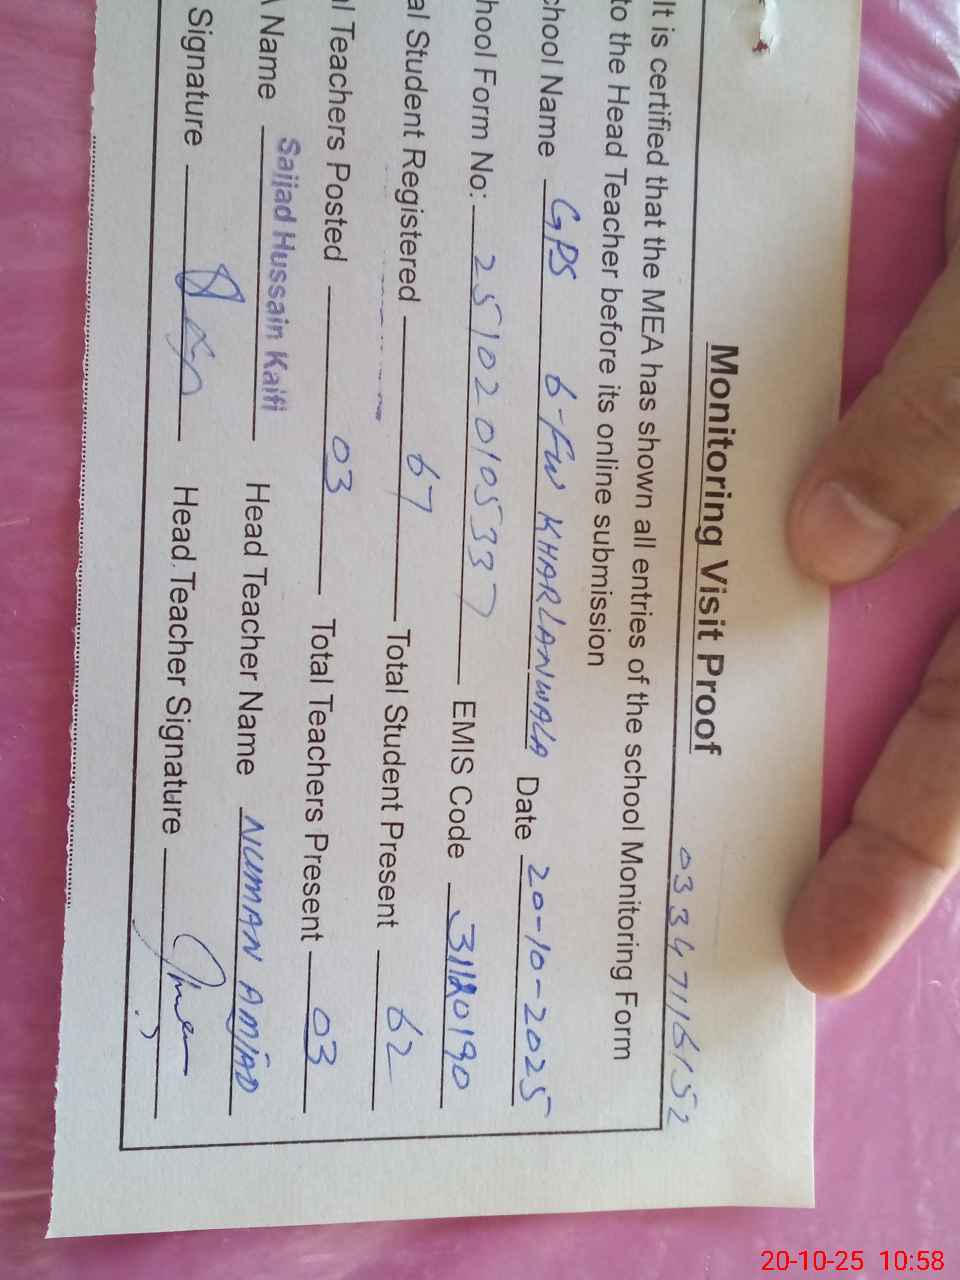 Monitoring Visit Proof
03347116152
It is certified that the MEA has shown all entries of the school Monitoring Form
to the Head Teacher before its online submission
chool Name GPS 6-FW KHARLANWALA Date 20-10-2025
hool Form No: 251020105337 EMIS Code 31120190
al Student Registered 67 Total Student Present 62
l Teachers Posted 03 Total Teachers Present 03
A Name Sajjad Hussain Kaifi Head Teacher Name NUMAN AMJAD
Signature Head Teacher Signature
20-10-25 10:58